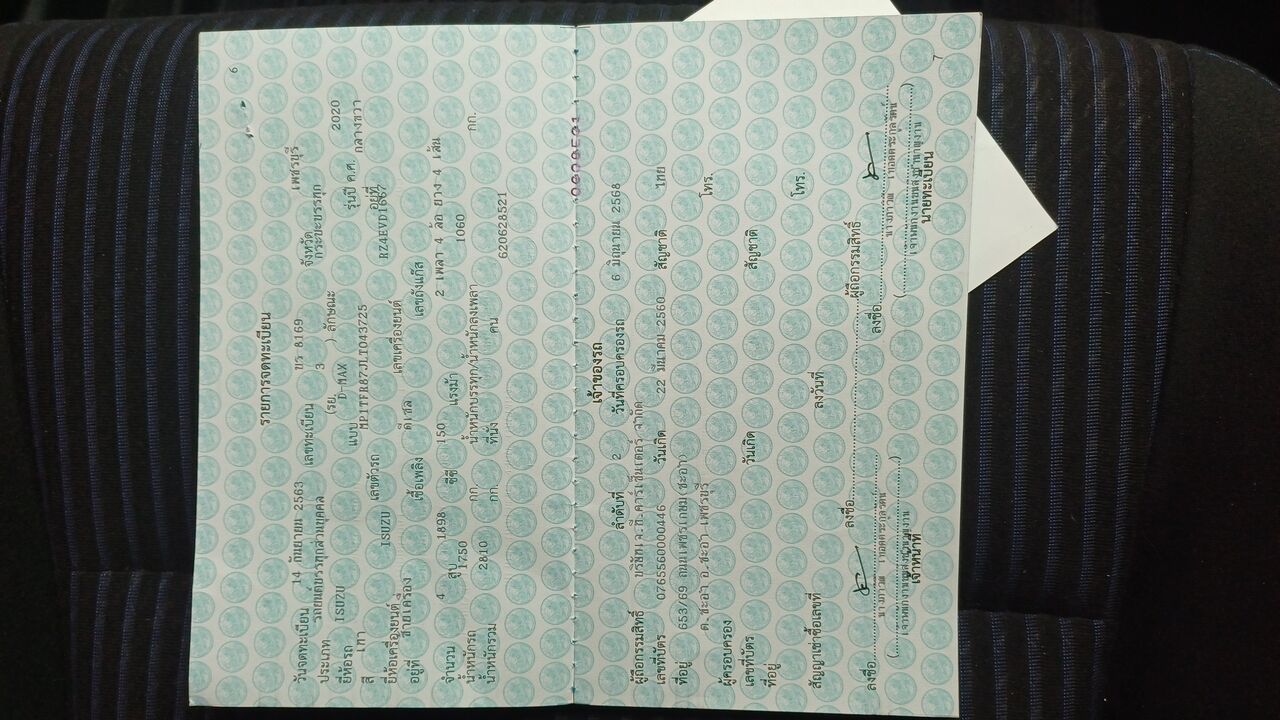 6
รายการจดทะเบียน
วันจดทะเบียน 14 กันยายน 2563 เลขทะเบียน ขร 8169 จังหวัด เพชรบุรี
ประเภท รถยนต์บรรทุกส่วนบุคคล (รย. 3 ลักษณะ กระบะบรรทุก
ยี่ห้อรถ ISUZU แบบ D-MAX รุ่นปี ค.ศ. 2020
เลขตัวรถ อยู่ที่ กลางขวา
ยี่ห้อเครื่องยนต์ ISUZU เลขเครื่องยนต์
อยู่ที่ เชื้อเพลิง ดีเซล เลขถังแก๊ส
จำนวน 4 สูบ 1898 ซีซี 150 แรงม้า 2 เพลา 4 ล้อ ยาง 4 เส้น
น้ำหนักรถ 1750 กก. 1060 กก.
น้ำหนักรวม 2810 กก. ที่นั่ง คน 620628521
เจ้าของรถ
ลำดับที่ 2 วันที่ครอบครองรถ 6 มิถุนายน 2568
ผู้ถือกรรมสิทธิ์ บริษัท คาร์ เซ็นเตอร์ จำกัด
เลขที่บัตร 0765560000446 วันเกิด 22 มีนาคม 2560 สัญชาติ ไทย
ที่อยู่ 653/69 ถนนเพชรเกษม(ชะอำ)
ต.ชะอำ อ.ชะอำ เพชรบุรี โทร.
ผู้ครอบครอง
เลขที่บัตร วันเกิด สัญชาติ
ที่อยู่ โทร.
สัญญาเช่าซื้อเลขที่ ลงวันที่
ผู้ถือกรรมสิทธิ์
ลงชื่อ ลงชื่อ ลงชื่อ
เจ้าหน้าที่ นายทะเบียน
7